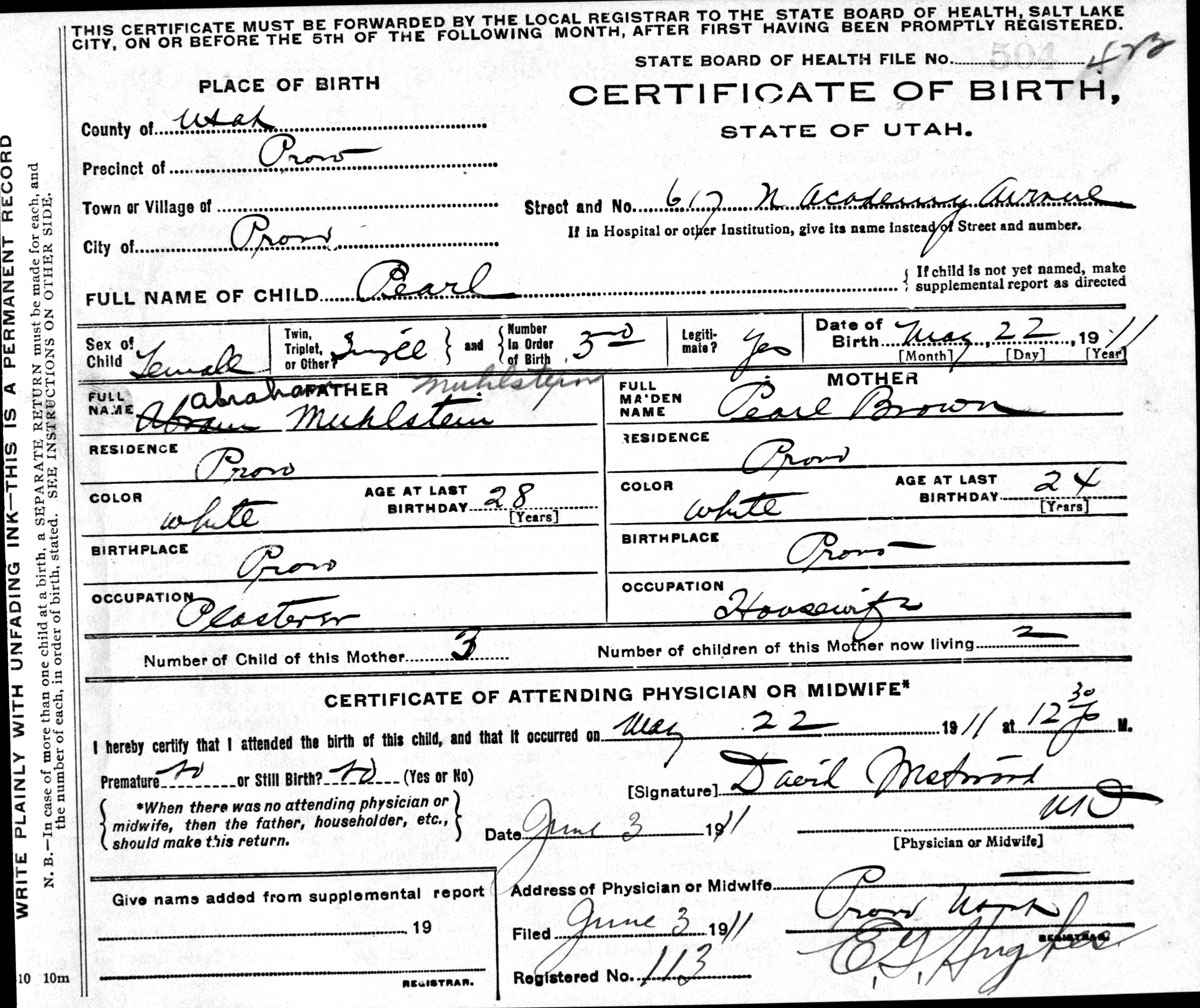 THIS CERTIFICATE MUST BE FORWARDED BY THE LOCAL REGISTRAR TO THE STATE BOARD OF HEALTH, SALT LAKE
CITY, ON OR BEFORE THE 5TH OF THE FOLLOWING MONTH, AFTER FIRST HAVING BEEN PROMPTLY REGISTERED.
WRITE PLAINLY WITH UNFADING INK—THIS IS A PERMANENT RECORD
N. B.—In case of more than one child at a birth, a SEPARATE RETURN must be made for each, and
the number of each, in order of birth, stated. SEE INSTRUCTIONS ON OTHER SIDE.
STATE BOARD OF HEALTH FILE No. 504
PLACE OF BIRTH
CERTIFICATE OF BIRTH,
STATE OF UTAH.
County of Utah
Precinct of Provo
Town or Village of
Street and No. 617 N Academy Avenue
City of Provo
If in Hospital or other Institution, give its name Instead of Street and number.
FULL NAME OF CHILD Pearl
{ If child is not yet named, make
supplemental report as directed
Sex of Child Female
Twin, Triplet, or Other? Single } and { Number In Order of Birth 3
Legiti-mate? Yes
Date of Birth May 22, 1911
[Month] [Day] [Year]
FATHER
Muhlstein
FULL NAME Abraham Muhlstein
MOTHER
FULL MAIDEN NAME Pearl Brown
RESIDENCE Provo
RESIDENCE Provo
COLOR white
AGE AT LAST BIRTHDAY 28
[Years]
COLOR white
AGE AT LAST BIRTHDAY 24
[Years]
BIRTHPLACE Provo
BIRTHPLACE Provo
OCCUPATION Plasterer
OCCUPATION Housewife
Number of Child of this Mother 3
Number of children of this Mother now living 2
CERTIFICATE OF ATTENDING PHYSICIAN OR MIDWIFE*
I hereby certify that I attended the birth of this child, and that it occurred on May 22 1911 at 12 30 M.
Premature No or Still Birth? No (Yes or No)
[Signature] David Westwood
MD
{ *When there was no attending physician or
midwife, then the father, householder, etc.,
should make this return. }
Date June 3 1911
[Physician or Midwife]
Give name added from supplemental report
19
REGISTRAR.
Address of Physician or Midwife
Provo Utah
Filed June 3 1911
E. G. Hughes
REGISTRAR.
Registered No. 113
10 10m